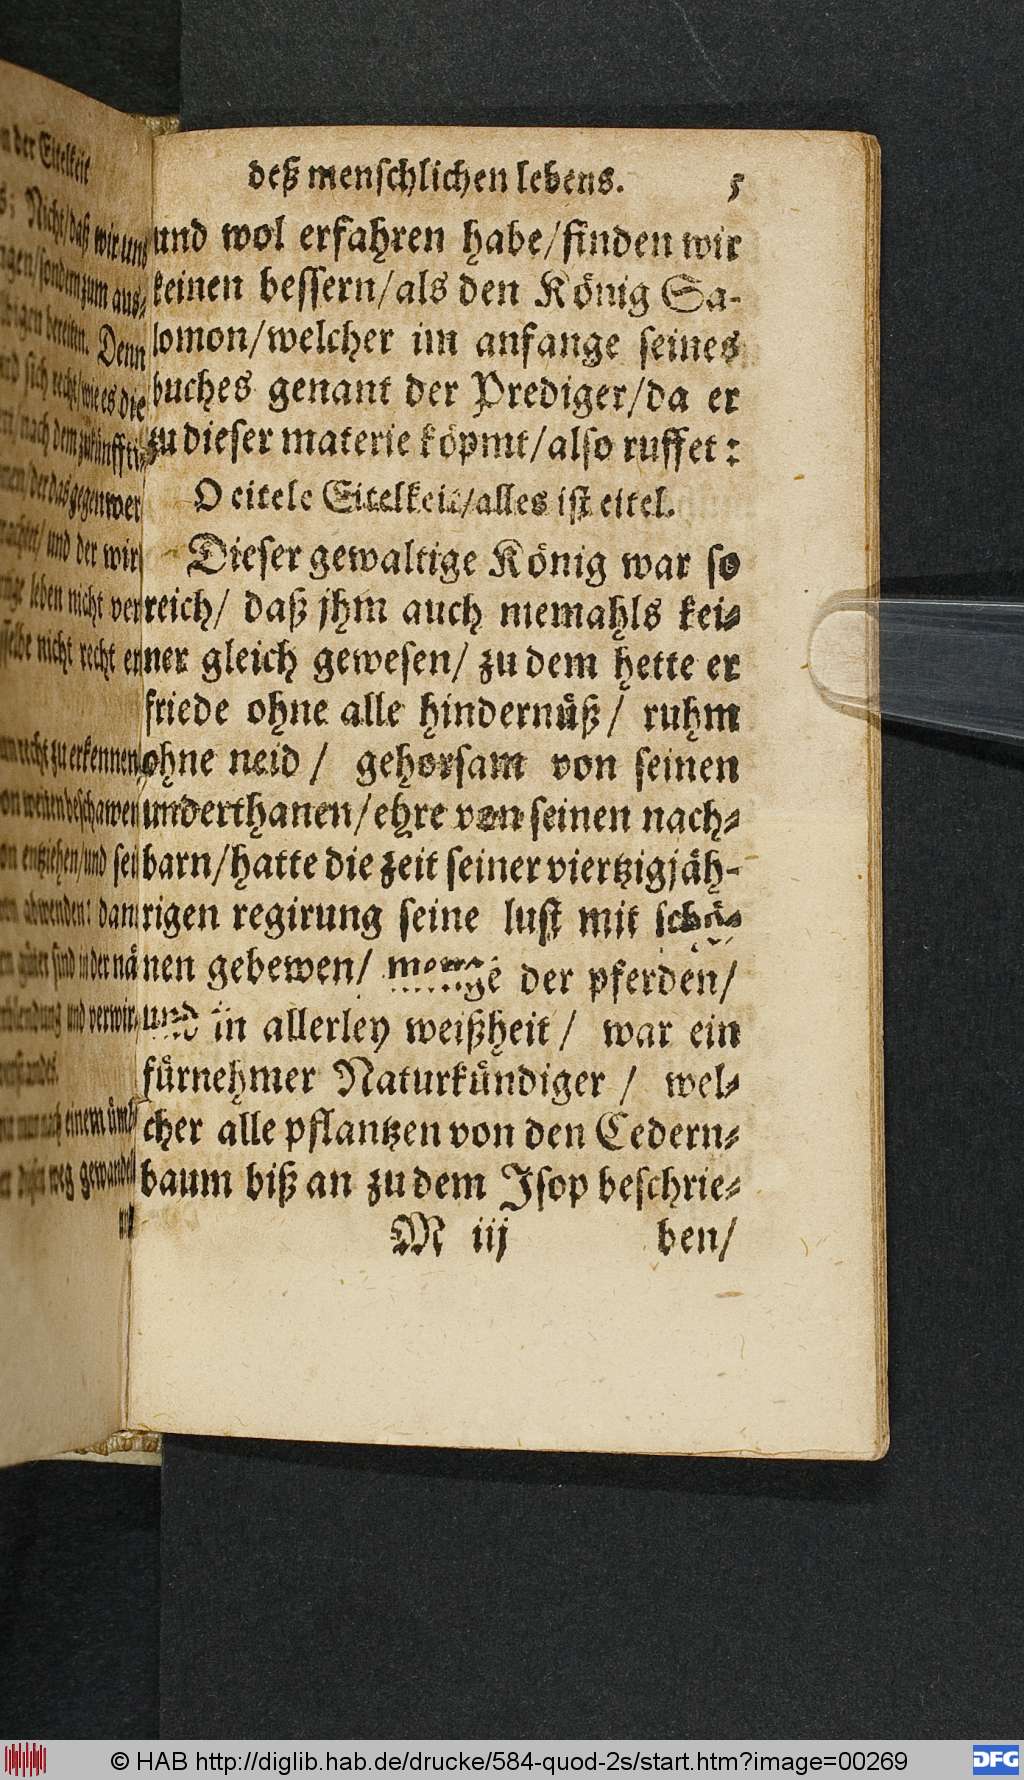 n der Eitelkeit
s: Nicht/daß wir uns
ngen/sondern zum aus⸗
bereiten. Denn
sich recht/wie es die
nach dem zukünffti⸗
men/der das gegenwer
und der wir
leben nicht ver
selbe nicht recht er
recht zu erkennen
von weitem beschawen
entziehen/und sei
abwenden: dan
güter sind in der nä
und verwir⸗
einem üm⸗
weg gewandelt
deß menschlichen lebens. 5
und wol erfahren habe/finden wir
keinen bessern/als den König Sa-
lomon/welcher im anfange seines
buches genant der Prediger/da er
zu dieser materie köpmt/also ruffet:
O eitele Eitelkeit/alles ist eitel.
Dieser gewaltige König war so
reich/ daß jhm auch niemahls kei⸗
ner gleich gewesen/ zu dem hette er
friede ohne alle hindernüß/ ruhm
ohne neid/ gehorsam von seinen
underthanen/ehre von seinen nach⸗
barn/hatte die zeit seiner viertzigjäh-
rigen regirung seine lust mit schö⸗
nen gebewen/ menge der pferden/
und in allerley weißheit/ war ein
fürnehmer Naturkündiger/ wel⸗
cher alle pflantzen von den Cedern⸗
baum biß an zu dem Isop beschrie⸗
M iij ben/
© HAB http://diglib.hab.de/drucke/584-quod-2s/start.htm?image=00269
DFG